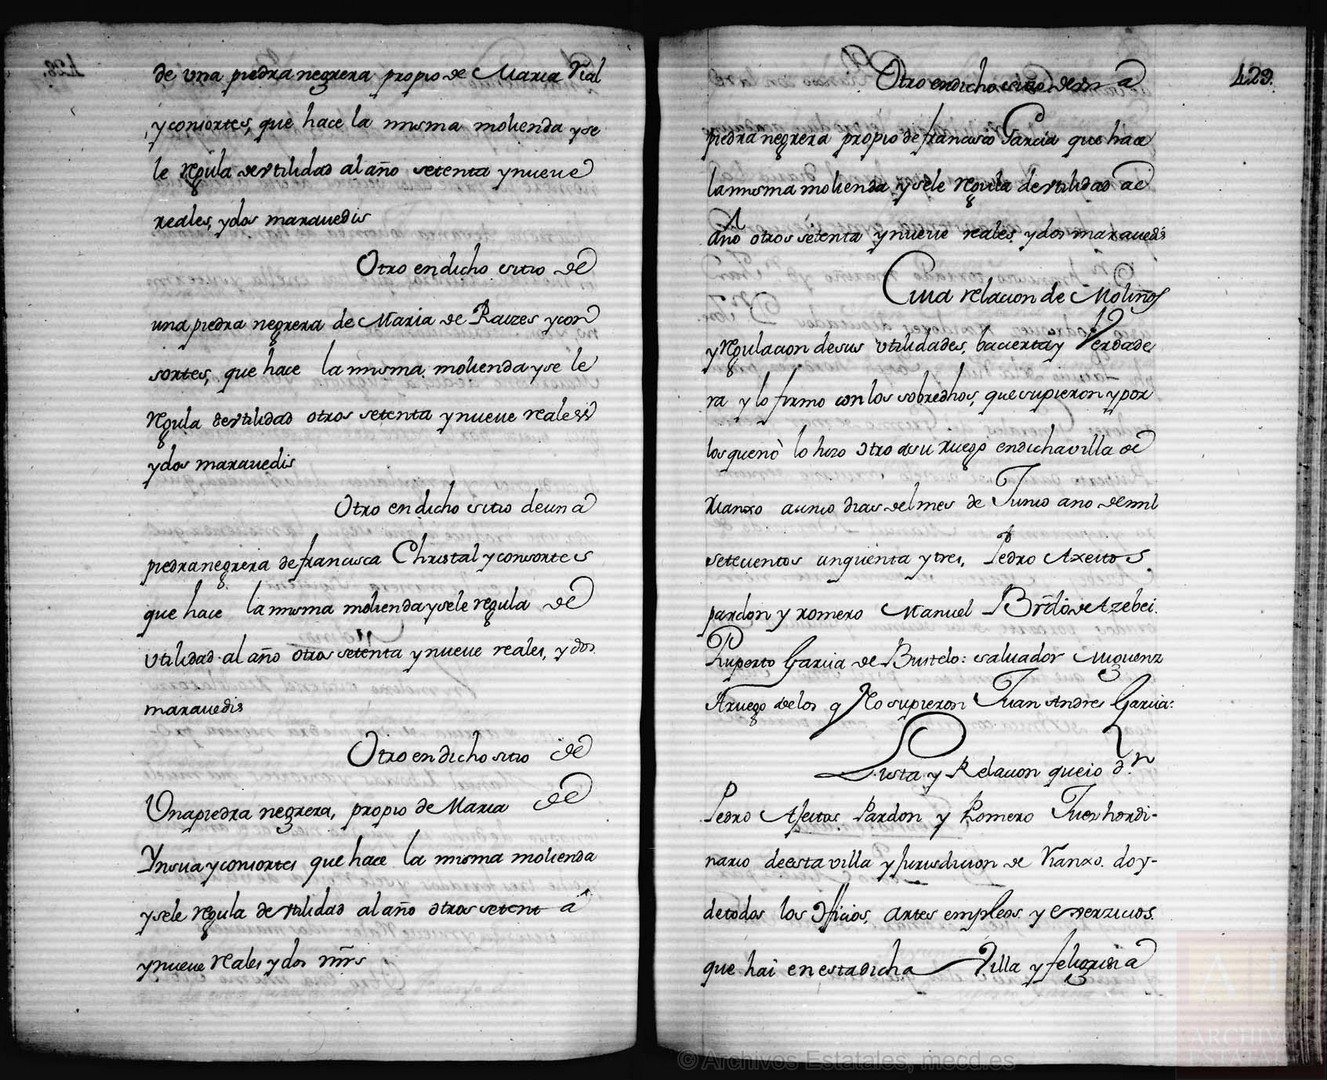 de una piedra negrera propio de Maria Vial
y consortes, que hace la misma molienda y se
le regula de utilidad al año setenta y nueve
reales, y dos maravedis
Otro en dicho sitio de
una piedra negrera de Maria de Raizes y con
sortes, que hace la misma molienda y se le
regula de utilidad otros setenta y nueve reales
y dos maravedis
Otro en dicho sitio de una
piedra negrera de francisca Christal y consortes
que hace la misma molienda y se le regula de
utilidad al año otros setenta y nueve reales, y dos
maravedis
Otro en dicho sitio de
Una piedra negrera, propio de Maria de
Ynsua y consortes que hace la misma molienda
y se le regula de utilidad al año otros setenta
y nueve reales y dos mrs
429.
Otro en dicho sitio de una
piedra negrera propio de francisco Garcia que hace
la misma molienda, y se le regula de utilidad al
Año otros setenta y nueve reales y dos maravedis
Cuia relacion de Molinos
y regulacion de sus utilidades, hacierta y Verdade
ra y lo firmo con los sobredhos, que supieron y por
los que no lo hizo otro a su ruego en dicha villa de
Rianxo a cinco dias del mes de Junio ano de mil
setecientos cinquenta y tres, Pedro Axeitos
pardon y romero Manuel de Azebei.
Ruperto Garcia de Bustelo: Salvador Miguenz
A ruego de los q No supieron Juan Andres Garcia:
Lista y Relacion que io Dn
Pedro Axeitos Pardon y Romero Juez hordi-
nario de esta villa y Jurisdicion de Rianxo. doy-
de todos los Officios, artes empleos y exerzicios
que hai en esta dicha Villa y feligrisia
© Archivos Estatales, mecd.es